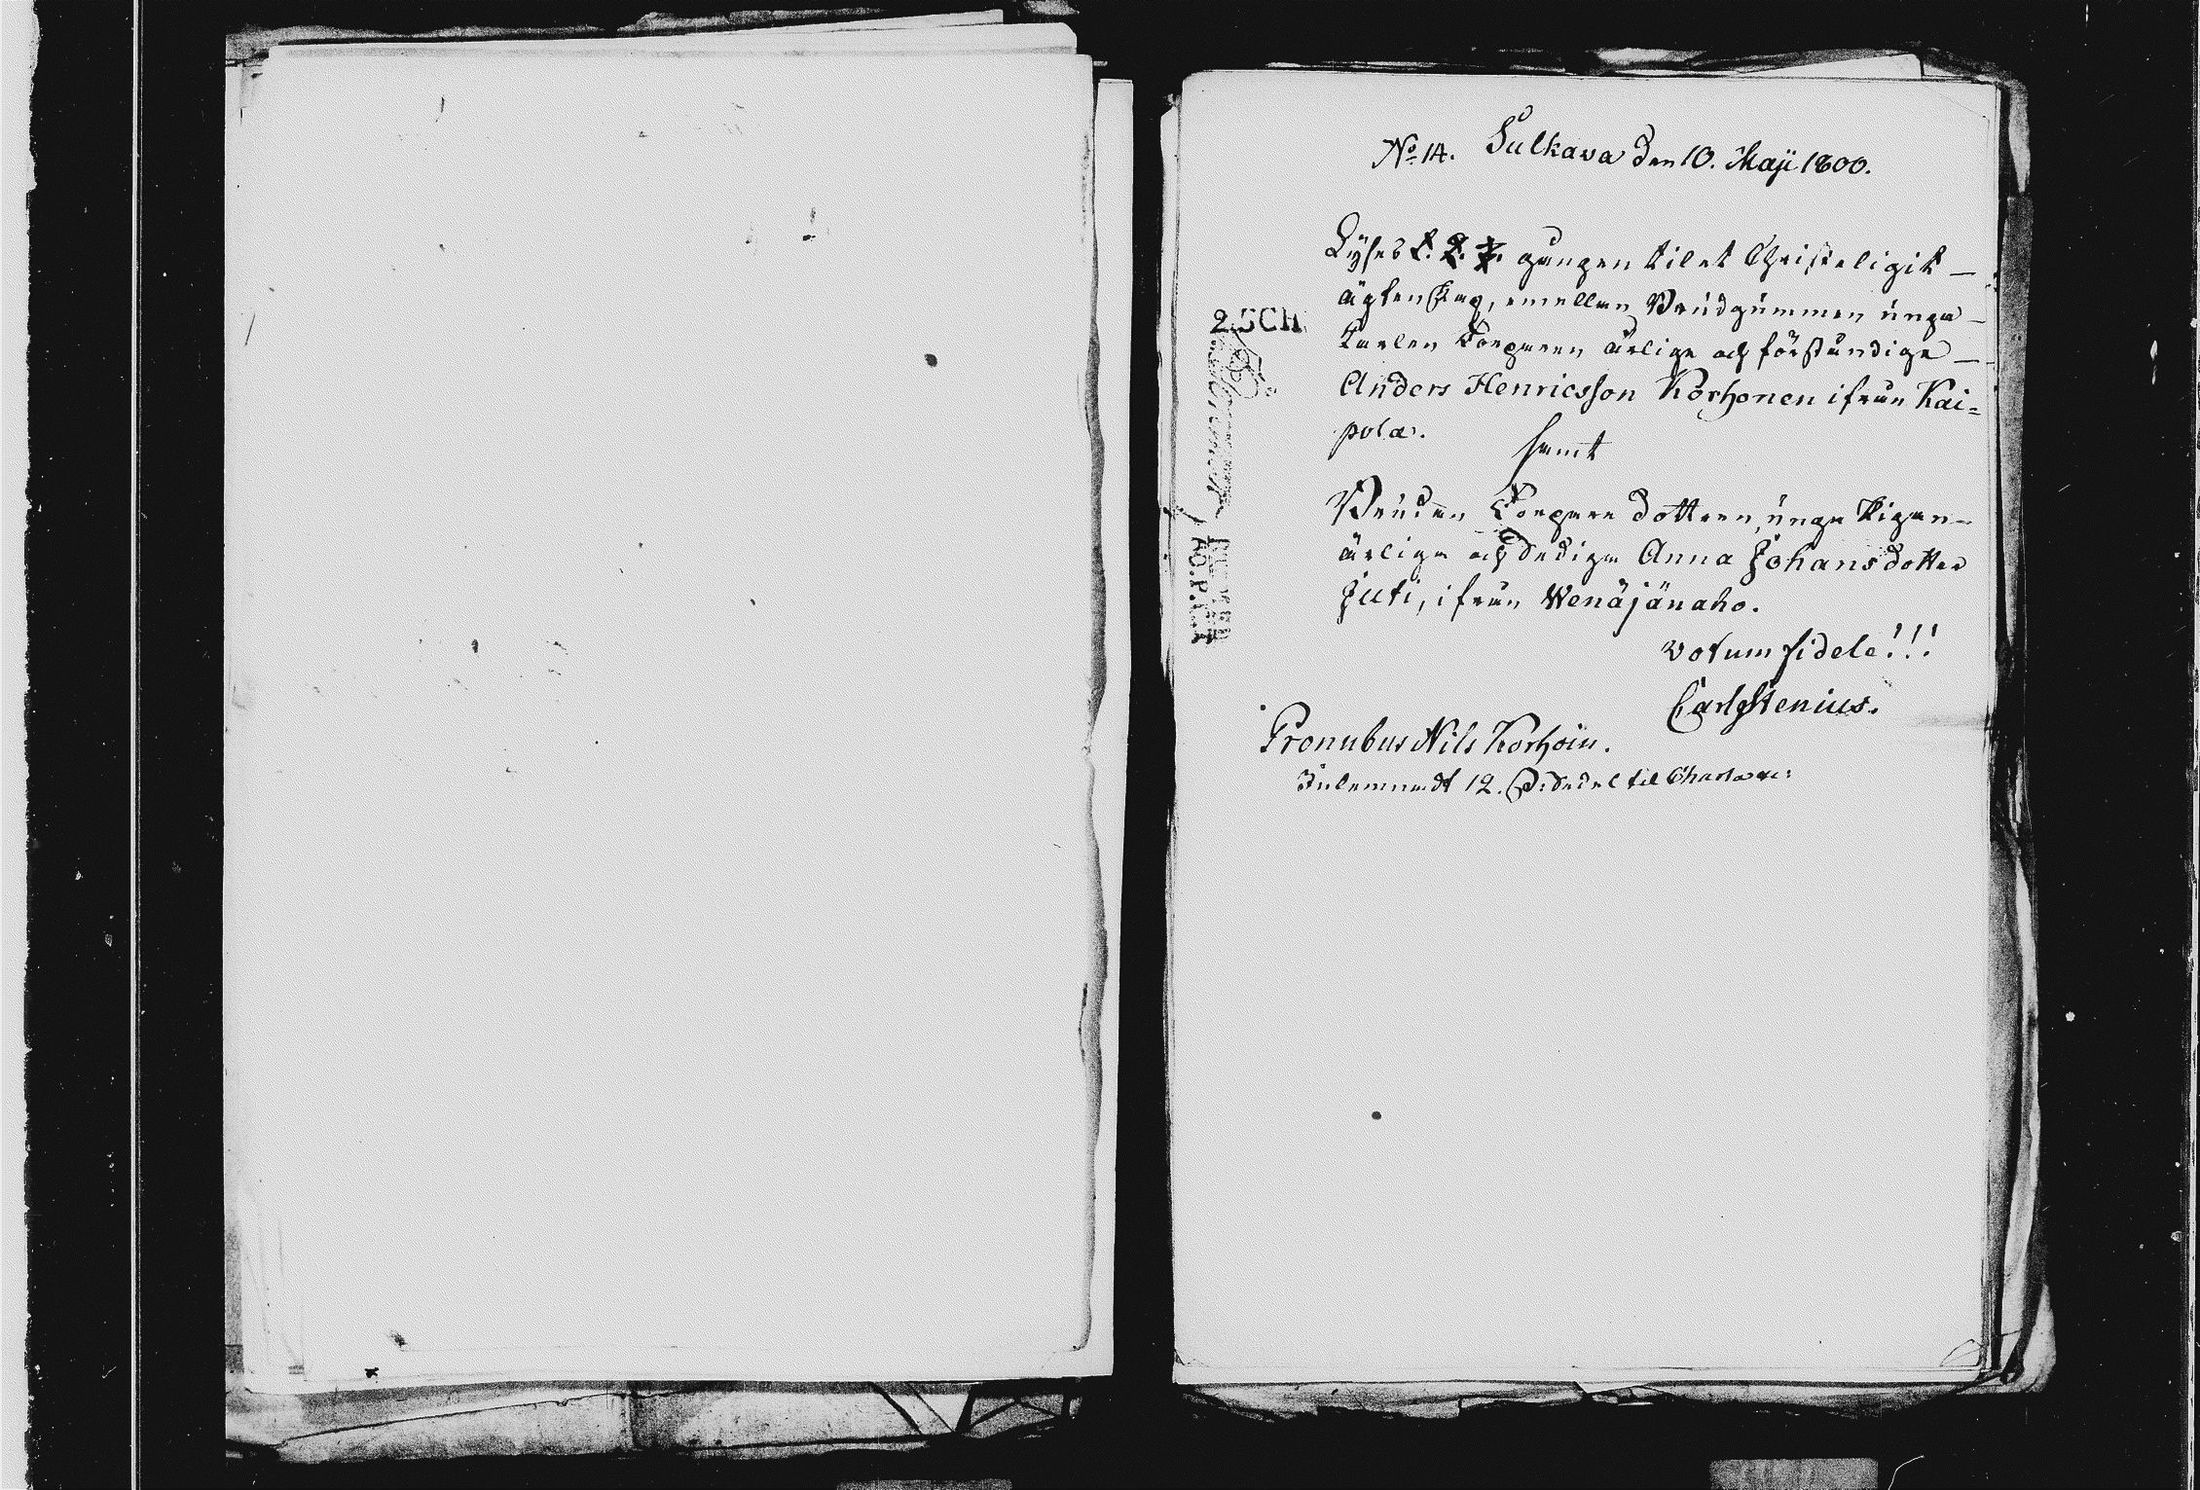 No 14. Sulkava den 10. Maji 1800.
Lyses 1. 2. 3. gången til et Christeligit
ägtenskap, emellan Brudgummen unga
Karlen Torparen ärlige och förståndige
Anders Henricsson Korhonen ifrån Kai=
pola.
samt
Bruden Torpare dottren, unga Pigan
ärliga och dediga Anna Johansdotter
Juti, ifrån Wenäjänaho.
votum fidele!!!
Carl Stenius.
Pronubus Nils Korhoin.
12. til Charta
2 SCH